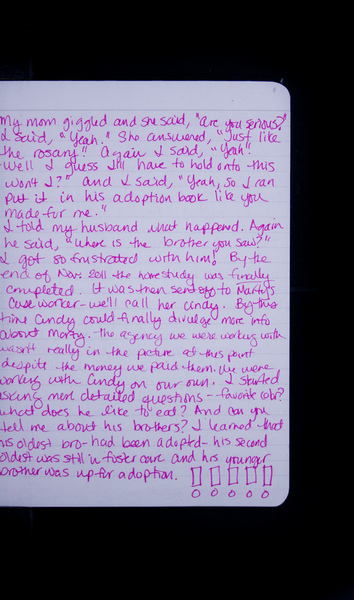 My mom giggled and she said, "Are you serious?"
I said, "Yeah." She answered, "Just like
the rosary." Again I said, "Yeah!"
Well I guess I'll have to hold onto this
won't I?" and I said, "Yeah, so I can
put it in his adoption book like you
made for me."
I told my husband what happened. Again
he said, "where is the brother you saw?"
I got so frustrated with him! By the
end of Nov. 2011 the homestudy was finally
completed. It was then sent off to Marty's
case worker - we'll call her Cindy. By this
time Cindy could finally divulge more info
about Marty. The agency we were working with
wasn't really in the picture at this point
despite the money we paid them. We were
working with Cindy on our own. I started
asking more detailed questions -- favorite color?
What does he like to eat? And can you
tell me about his brothers? I learned that
his oldest bro - had been adopted - his second
oldest was still in foster care and his younger
brother was up for adoption.